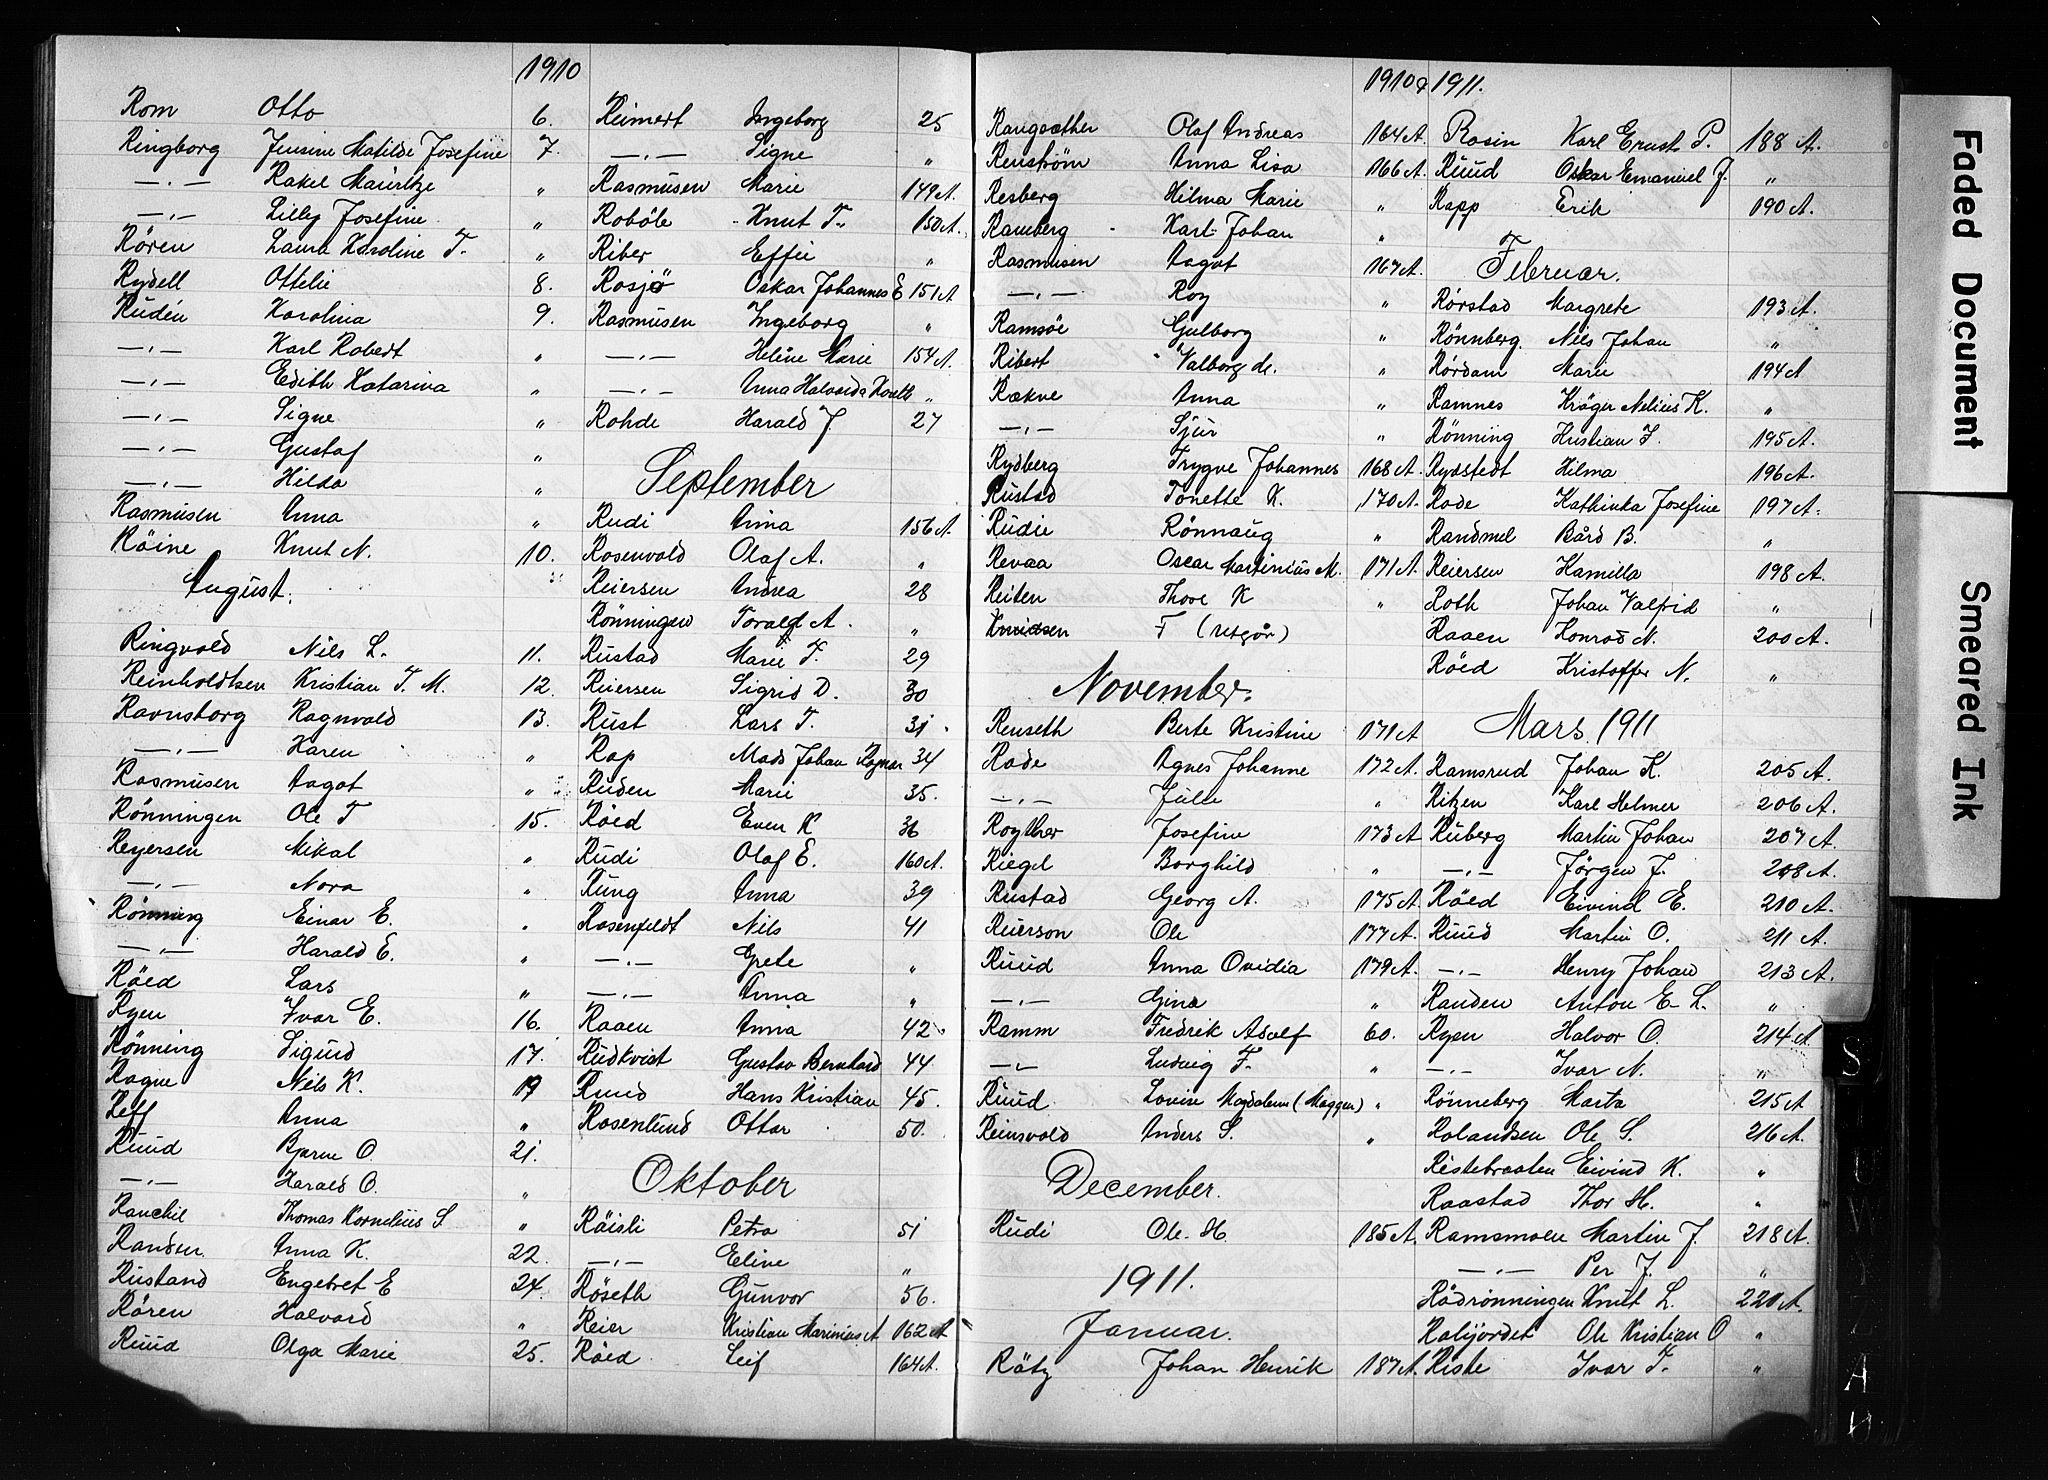 1910
Rom Otto 6.
Ringborg Jensine Matilde Josefine 7.
—„— Rakel Mauritze „
—„— Lilly Josefine „
Røren Laura Karoline T. „
Rydell Ottelie 8.
Rudén Karolina 9.
—„— Karl Robert „
—„— Edith Katarina „
—„— Signe „
—„— Gustaf „
—„— Hilda „
Rasmusen Anna „
Röine Knut N. 10.
August.
Ringvold Nils L. 11.
Reinholdtsen Kristian T. M. 12.
Ravnsborg Ragnvald 13.
—„— Karen „
Rasmusen Aagot „
Rönningen Ole T 15.
Reyersen Mikal „
—„— Nora „
Rönning Einar E. „
—„— Harald E.
Röed Lars „
Ryen Ivar E. 16.
Rönning Sigurd 17.
Rogne Nils K. 19
Reff Anna „
Ruud Bjarne O. 21.
—„— Harald O. „
Thomas Kornelius S „
Randen Anna K. 22.
Rustand Engebret E 24.
Rören Halvard „
Ruud Olga Marie 25.
Reimert Ingeborg 25
—„— Signe „
Rasmusen Marie 149 A
Roböle Knut T. 150 A.
Riber Effie „
Rosjø Oskar Johannes E 151 A
Rasmusen Ingeborg „
—„— Helene Marie 154 A.
—„— Anna „
Rohde Harald J. 27
September
Rudi Anna 156 A.
Rosenvold Olaf A. „
Reiersen Andrea 28
Rönningen Torald A. „
Rustad Marie T. 29
Reiersen Sigrid D. 30
Rust Lars T. 31
Rap Mads Johan Ragnar 34
Ruden Marie 35.
Röed Even K 36
Rudi Olaf E. 160 A.
Rung Anna 39
Rosenfeldt Nils 41
—„— Grete „
—„— Anna „
Raaen Anna 42
Rudkvist Gustav Bernhard 44
Ruud Hans Kristian 45.
Rosenlund Ottar 50.
Oktober
Röisli Petra 51
—„— Eline „
Röseth Gunvor 56.
Reier Kristian Marinius A 162 A
Röed Leif 164 A.
1910 & 1911.
Rangsæther Olaf Andreas 164 A.
Renström Anna Lisa 166 A.
Resberg Hilma Marie „
Ramberg Karl Johan „
Rasmusen Aagot 167 A.
—„— Roy „
Ramsöe Gulborg „
Ribert Valborg de. „
Rækve Anna „
—„— Sjur „
Rydberg Trygve Johannes 168 A.
Rustad Tonette K. 170 A.
Rudie Rönnaug „
Revaa Oscar Martinius M. 171 A.
Reiten Thore K „
Knudsen F (utgår)
November.
Renseth Berte Kristine 171 A
Rode Agnes Johanne 172 A.
—„— Julle „
Royther Josefine 173 A
Riegel Borghild „
Rustad Georg A. 175 A.
Reierson Ole 177 A.
Ruud Anna Ovidia 179 A.
—„— Gina „
Ramm Fredrik Adolf 60.
—„— Ludvig F. „
Ruud Lovise Magdalene (Maggen) „
Reinsvold Anders S. „
December.
Rudi Ole H. 185 A.
1911.
Januar.
Rätz Johan Henrik 187 A.
Rosin Karl Ernst P. 188 A.
Ruud Oskar Emanuel J. „
Rapp Erik 190 A.
Februar.
Rörstad Margrete 193 A.
Rönnberg. Nils Johan „
Rördam Marie 194 A
Ramnes Kröger Nelius K. „
Rönning Kristian J. 195 A.
Rydstedt Hilma 196 A.
Rode Kathinka Josefine 197 A.
Randmel Bård B. „
Reiersen Kamilla 198 A.
Roth Johan Valfrid „
Raaen Konrad N. 200 A.
Röed Kristoffer N. „
Mars 1911
Ramsrud Johan K. 205 A.
Ritzen Karl Helmer 206 A.
Ruberg Martin Johan 207 A.
—„— Jørgen J. 208 A.
Röed Eivind E. 210 A.
Ruud Martin O. 211 A.
—„— Henry Johan 213 A.
Randen Anton E. L. „
Ryen Halvor O. 214 A.
—„— Ivar N. „
Rönneberg Marta 215 A
Rolandsen Ole S. 216 A.
Ristebraaten Eivind K. „
Raastad Thor H. „
Ramsmoen Martin J. 218 A.
—„— Per J. „
Rödrönningen Knut L. 220 A.
Ole Kristian O „
Riste Ivar T. „
Faded Document
Smeared Ink